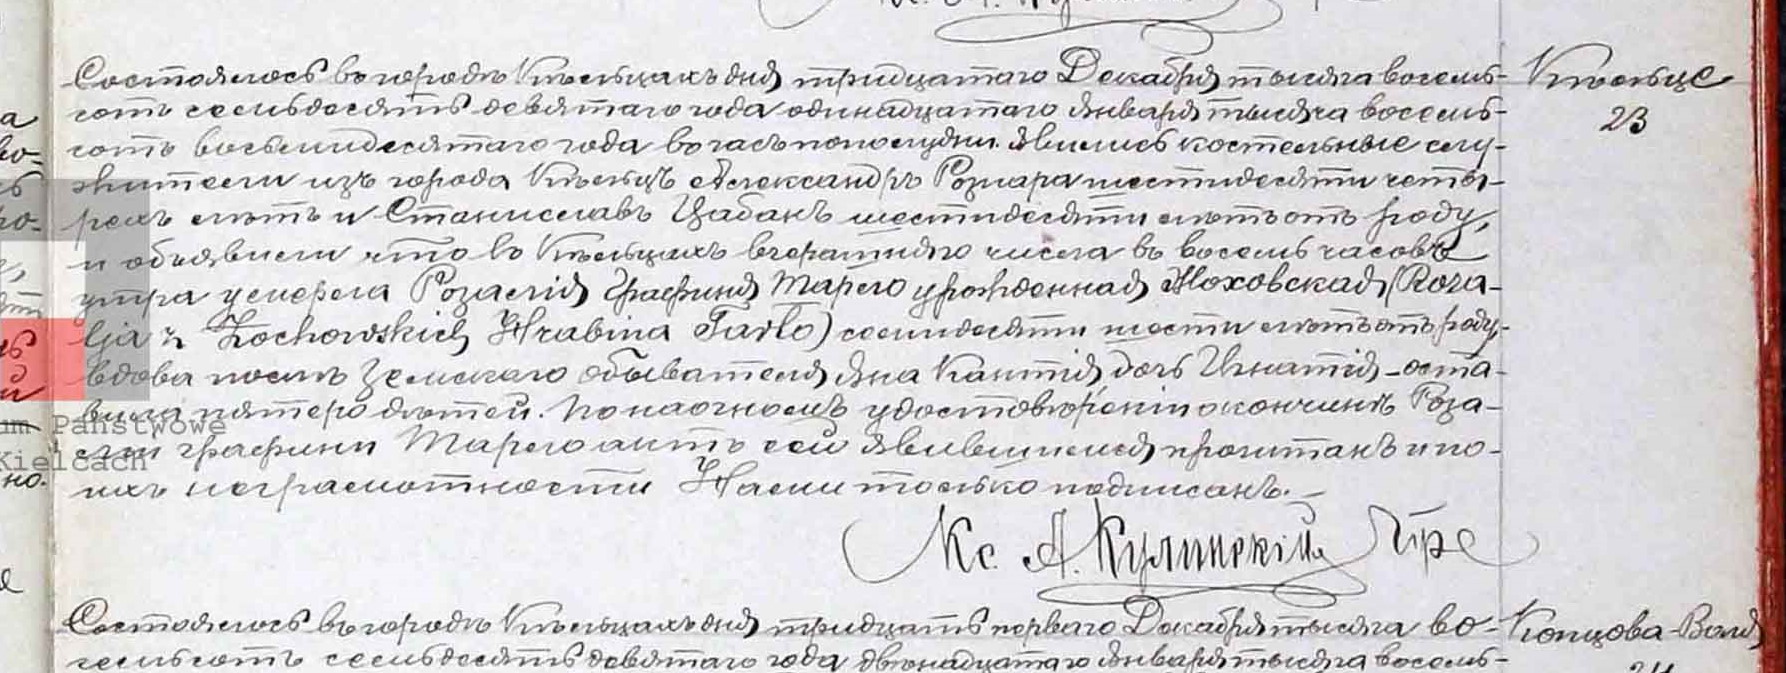 Состоялось въ городѣ Кѣльцахъ дня тридцатаго Декабря тысяча восемь-
сотъ семьдесятъ девятаго года одинадцатаго Января тысяча восемь-
сотъ восьмидесятаго года въ часъ пополудни. Явились костельные слу-
жители изъ города Кѣльцъ Александръ Рознара шестидесяти четы-
рехъ лѣтъ и Станиславъ Цабанъ шестидесяти лѣтъ отъ роду,
и объявили что въ Кѣльцахъ вчерашняго числа въ восемь часовъ
утра умерла Розалія Графиня Тарло урожденная Жоховская (Roza-
lja z Żochowskich Hrabina Tarło) семидесяти шести лѣтъ отъ роду,
вдова послѣ Земскаго обывателя Яна Кантія дочь Игнатія – оста-
вила пятеро дѣтей. По наочномъ удостовѣреніи о кончинѣ Роза-
um Państwowe
ліи графини Тарло актъ сей явившимся прочитанъ и по
Kielcach
ихъ неграмотности Нами только подписанъ. –
Кс. А. Кулинскій
Состоялось въ городѣ Кѣльцахъ дня тридцать перваго Декабря тысяча во-
семьсотъ семьдесятъ девятаго года двѣнадцатаго Января тысяча восемь-
Кѣльце
23
Копцова-Воля
24